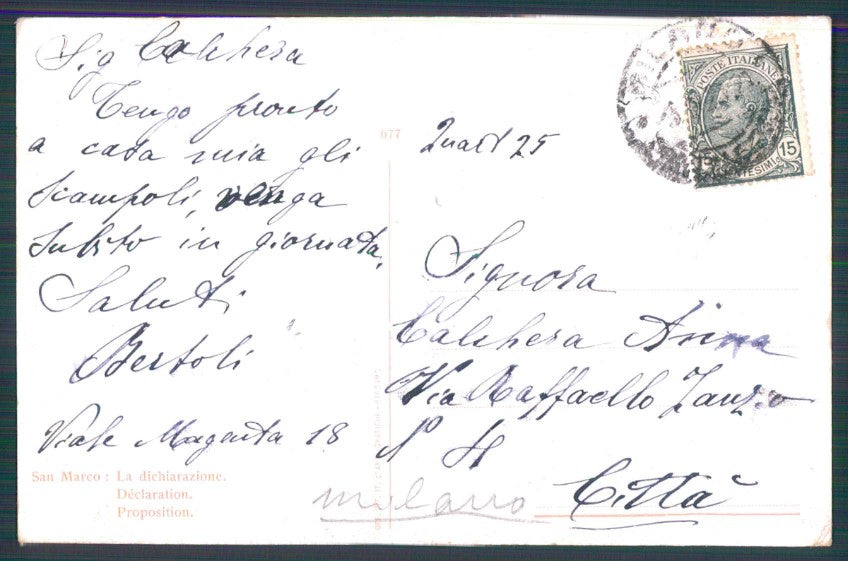 Sig Calchera
Tengo pronto
a casa mia gli
scampoli, venga
subito in giornata.
Saluti
Bertoli
Viale Magenta 18
San Marco: La dichiarazione.
Déclaration.
Proposition.
077
25
POSTE ITALIANE
15
CENTESIMI
15
Signora
Calchera Anna
Via Raffaello Sanzio
N° 4
Città
milano